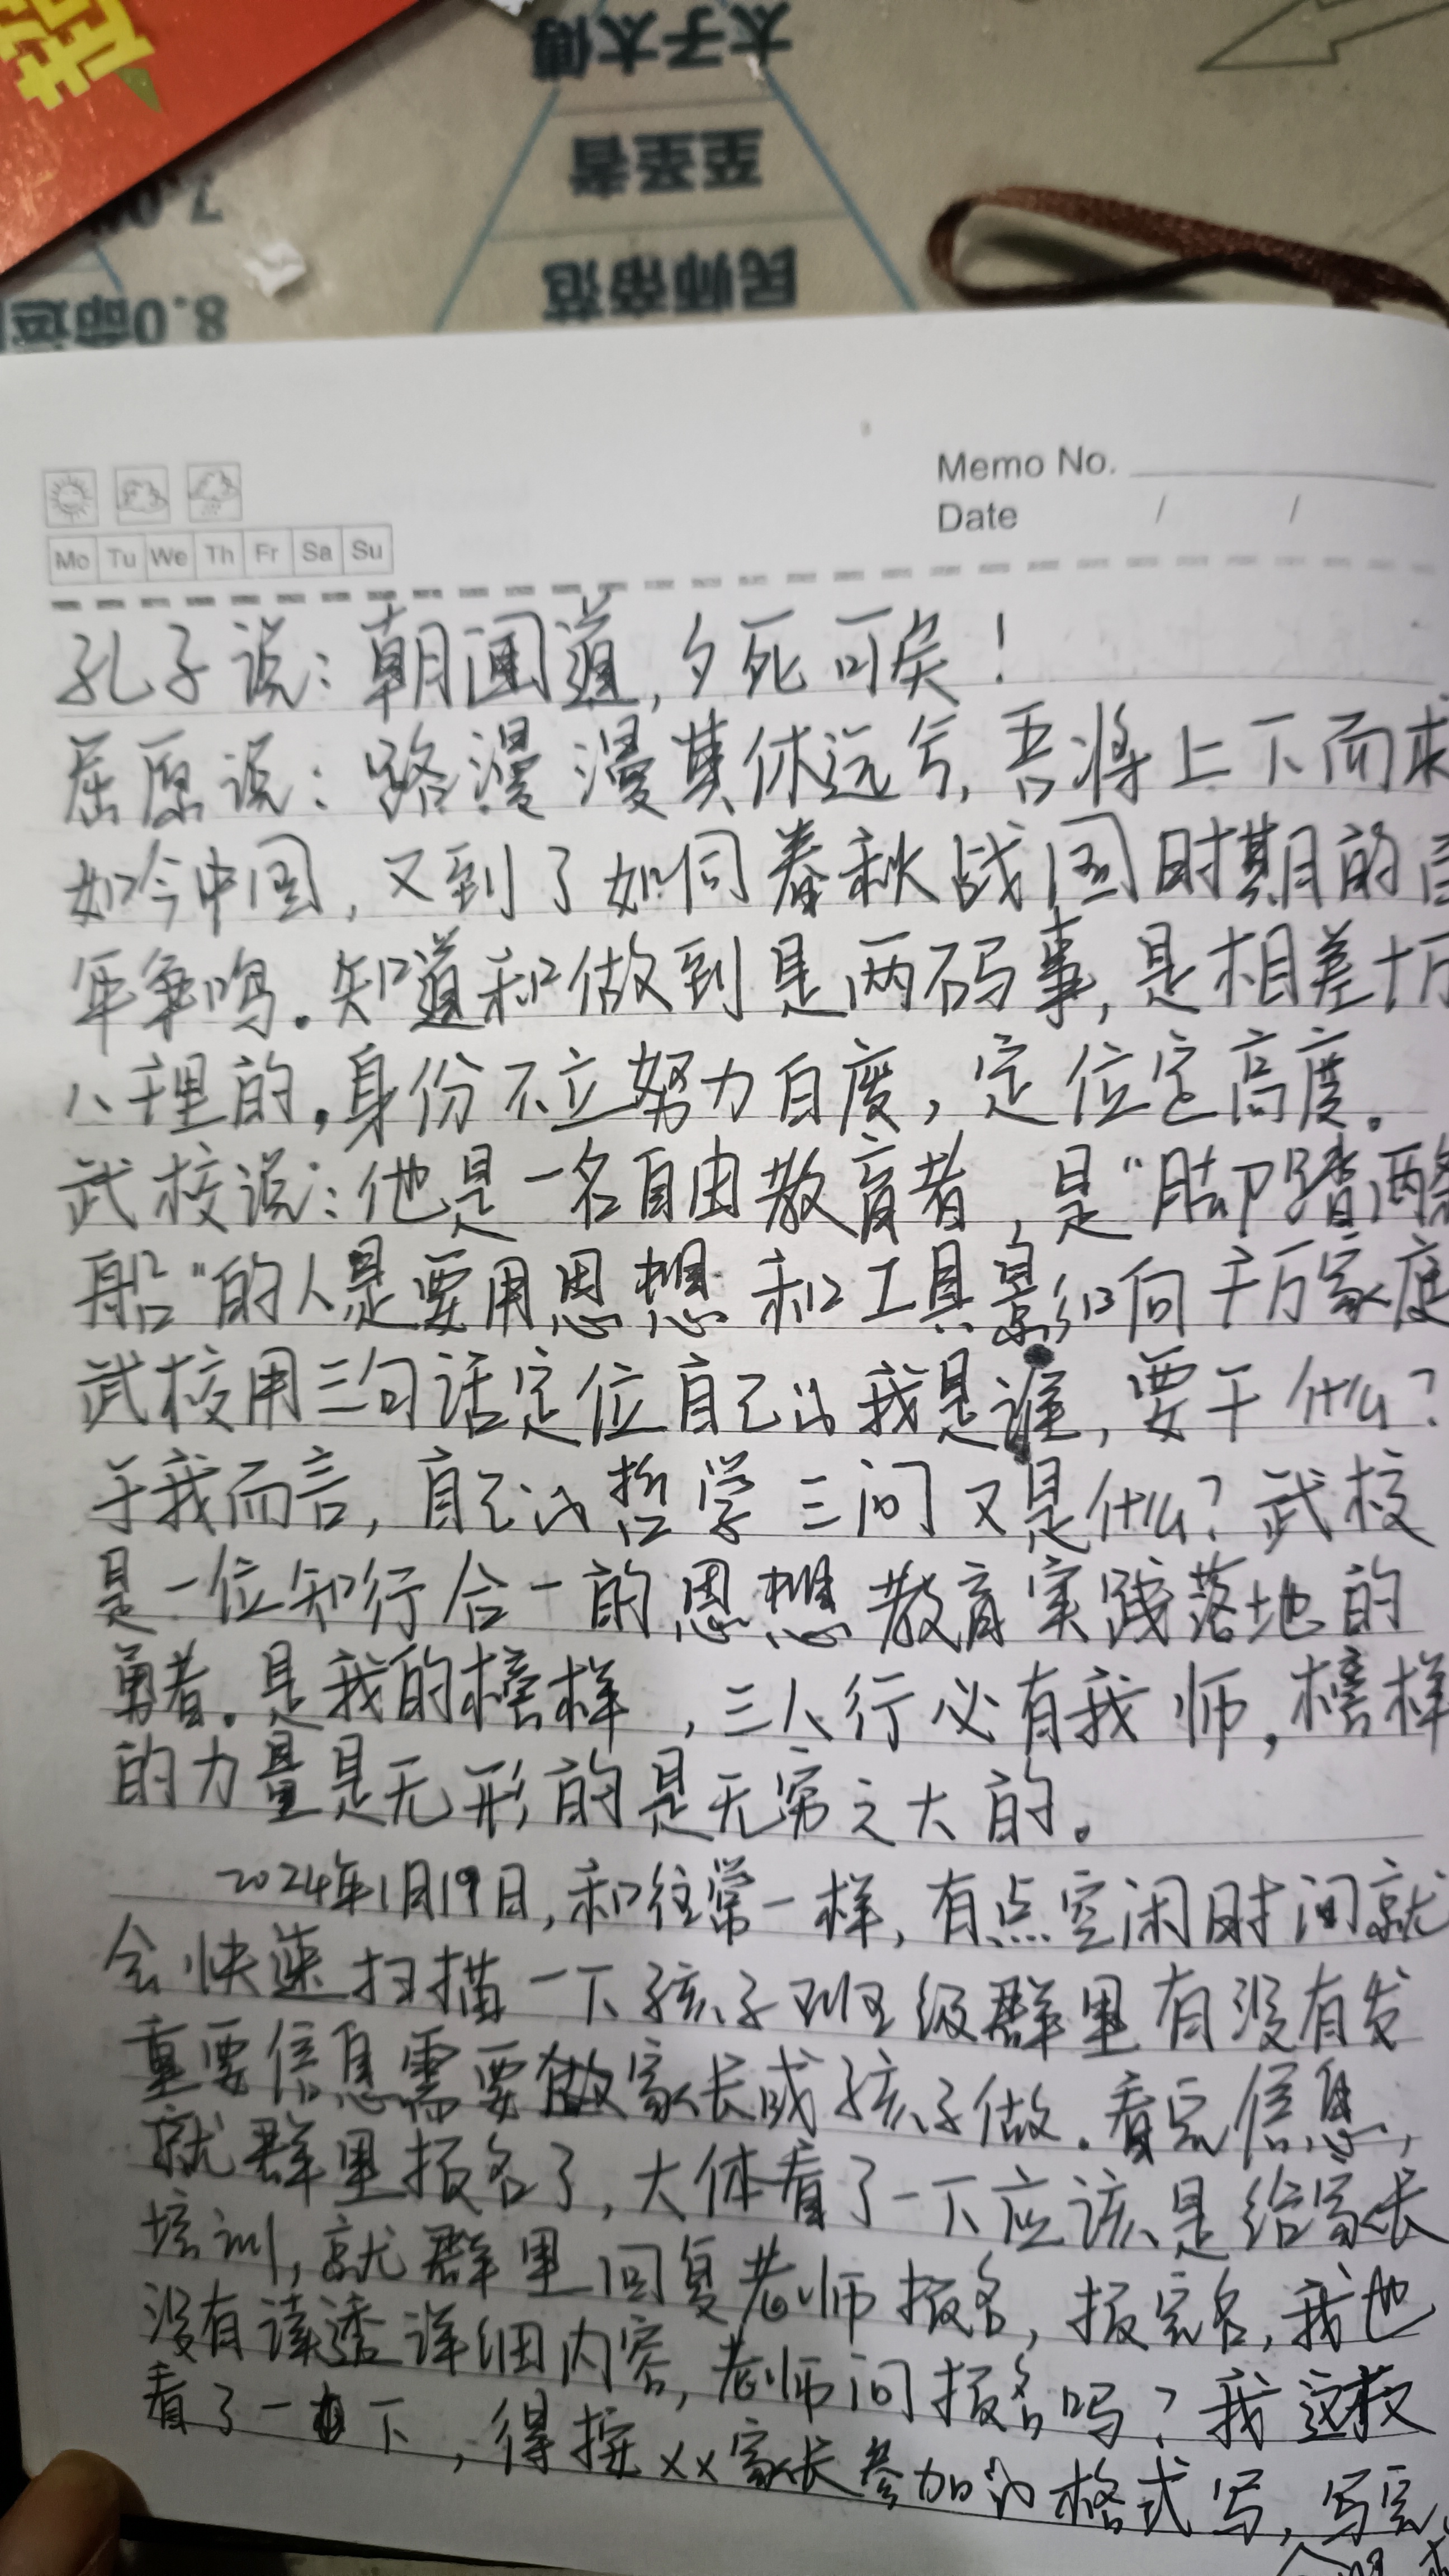 太子太傅
至圣者
民师帝范
7.0
8.0命运
Memo No.
Date / /
Mo Tu We Th Fr Sa Su
孔子说：朝闻道，夕死可矣！
屈原说：路漫漫其休远兮，吾将上下而求
如今中国，又到了如同春秋战国时期的百
年争鸣。知道和做到是两码事，是相差十万
八千里的。身份不立努力白废，定位定高度。
武校说：他是一名自由教育者，是“脚踏两条
船”的人是要用思想和工具影红向千万家庭
武校用三句话定位自己的我是谁，要干什么？
于我而言，自己的哲学三问又是什么？武校
是一位知行合一的思想教育实践落地的
勇者。是我的榜样，三人行必有我师，榜样
的力量是无形的是无穷之大的。
2024年1月19日，和往常一样，有点空闲时间就
会快速扫描一下孩子班级群里有没有发
重要信息需要做家长或孩子做。看完信息，
就群里报名了，大体看了一下应该是给家长
培训，就群里回复老师报名，报完名，我也
没有读透详细内容，老师问报名吗？我这救
看了一下，得按××家长参加的格式写，写完